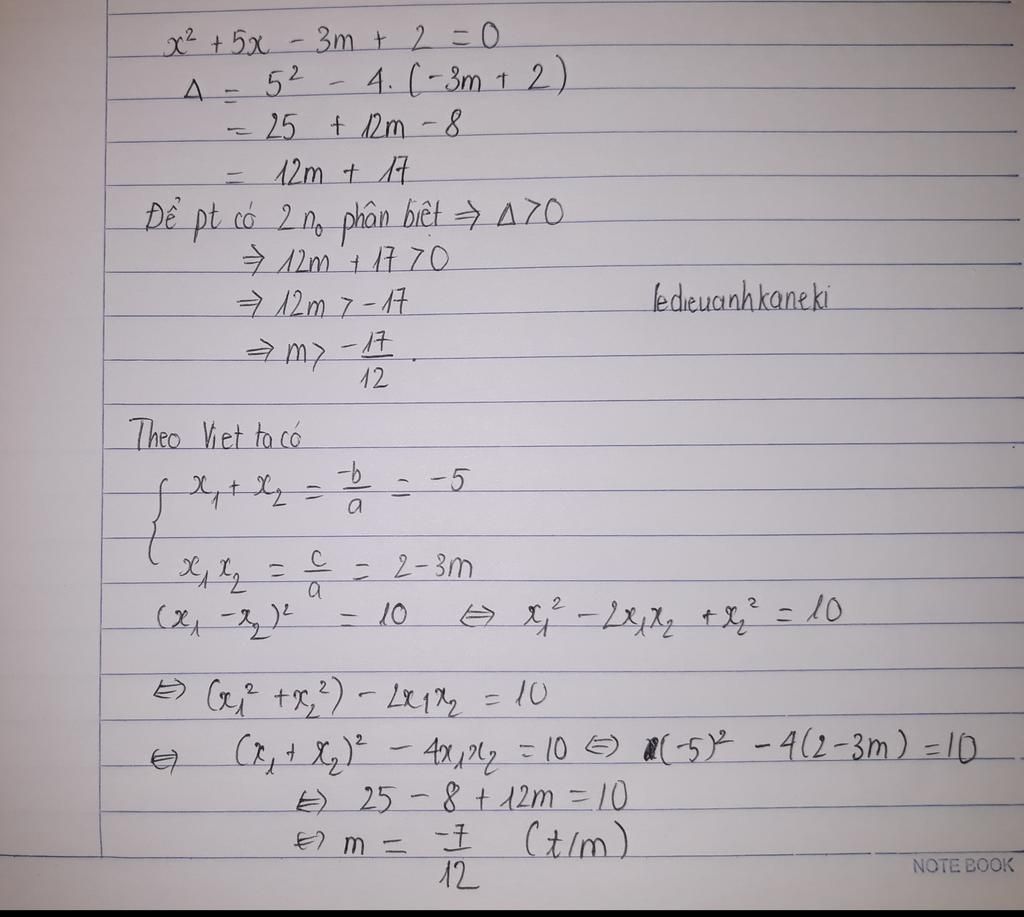 x² + 5x - 3m + 2 = 0
Δ = 5² - 4. (-3m + 2)
= 25 + 12m - 8
= 12m + 17
Để pt có 2 n₀ phân biệt ⇒ Δ > 0
⇒ 12m + 17 > 0
⇒ 12m > -17
ledieuanhkaneki
⇒ m > -17/12.
Theo Viet ta có
{ x₁ + x₂ = -b/a = -5
x₁x₂ = c/a = 2 - 3m
(x₁ - x₂)² = 10 ⇔ x₁² - 2x₁x₂ + x₂² = 10
⇔ (x₁² + x₂²) - 2x₁x₂ = 10
⇔ (x₁ + x₂)² - 4x₁x₂ = 10 ⇔ (-5)² - 4(2 - 3m) = 10
⇔ 25 - 8 + 12m = 10
⇔ m = -7/12 (t/m)
NOTE BOOK